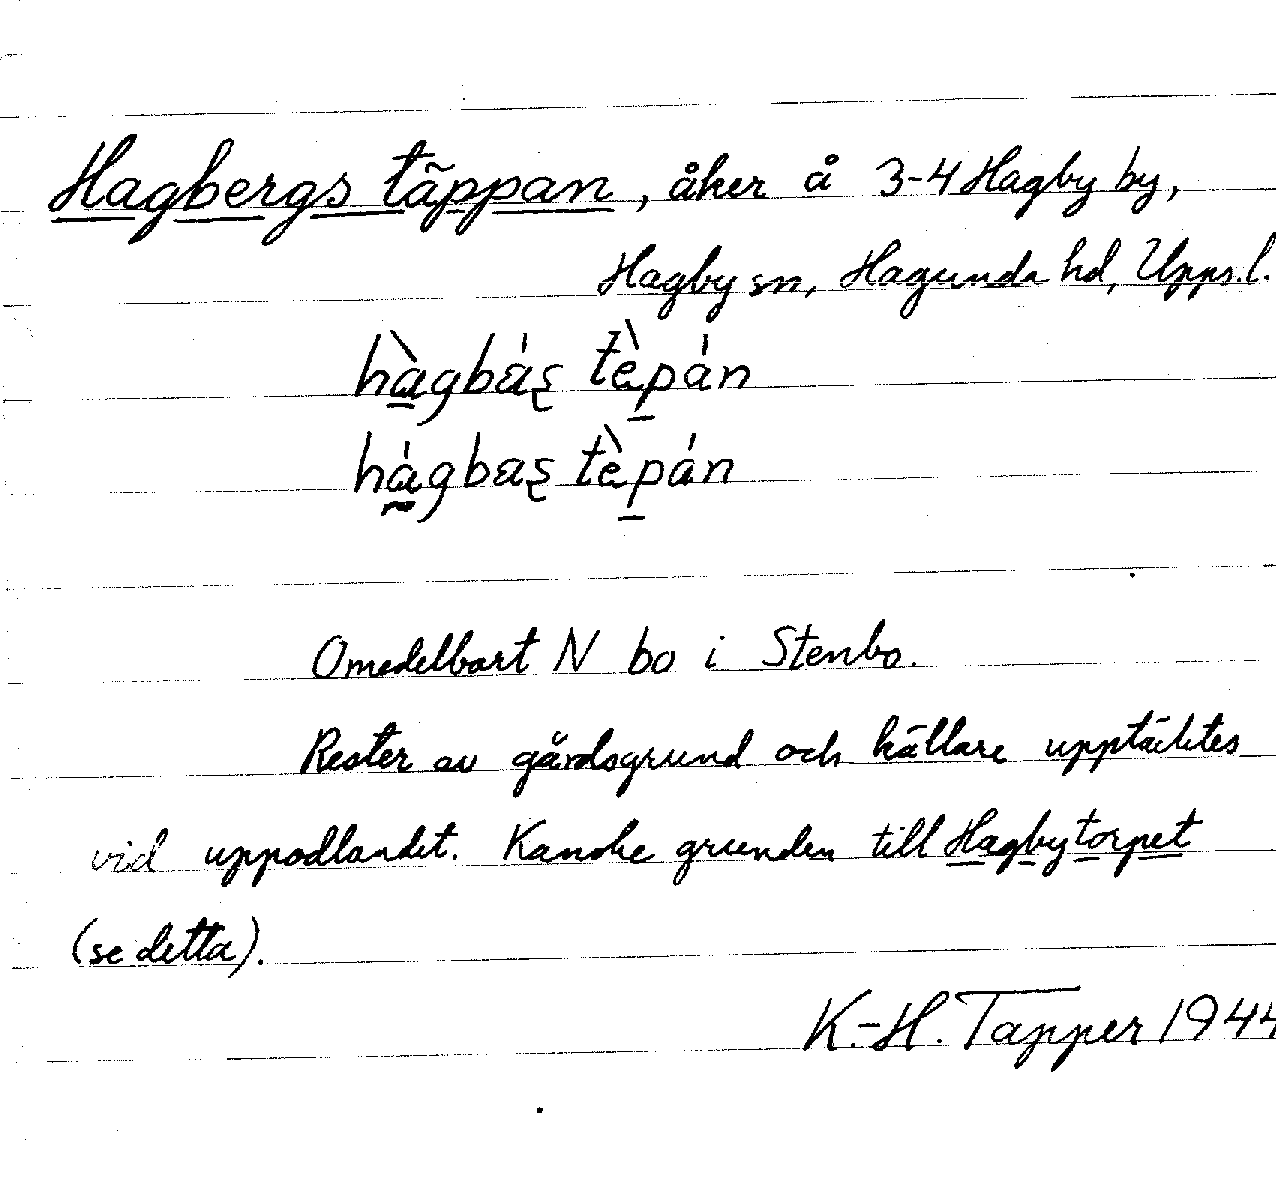 Hagbergs täppan, åker å 3-4 Hagby by,
Hagby sn, Hagunda hd, Upps.l.
hàgbá̀ʂ tèpán
hágbaʂ tèpán
Omedelbart N bo i Stenbo.
Rester av gårdsgrund och källare upptäcktes
vid uppodlandet. Kanske grunden till Hagbytorpet
(se detta).
K.-H. Tapper 1944